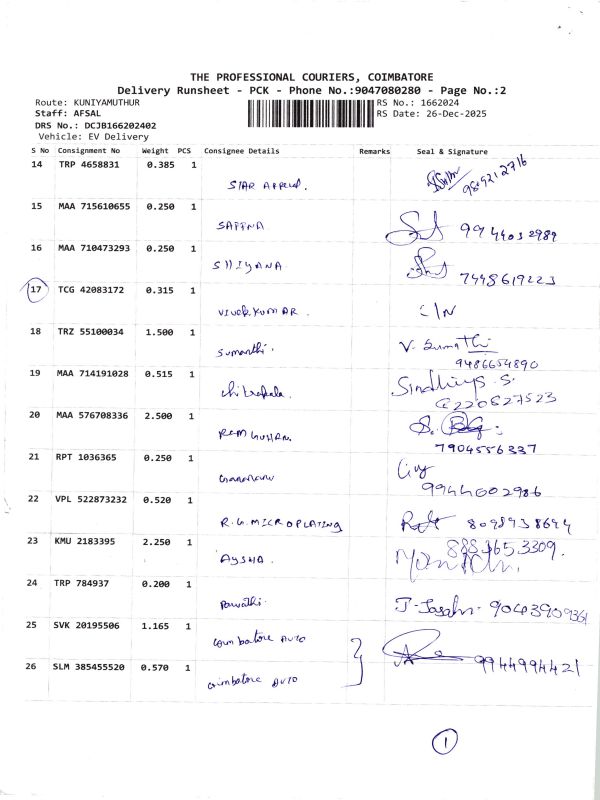 THE PROFESSIONAL COURIERS, COIMBATORE
Delivery Runsheet - PCK - Phone No.:9047080280 - Page No.:2
Route: KUNIYAMUTHUR RS No.: 1662024
Staff: AFSAL RS Date: 26-Dec-2025
DRS No.: DCJB166202402
Vehicle: EV Delivery
S No Consignment No Weight PCS Consignee Details Remarks Seal & Signature
14 TRP 4658831 0.385 1
STAR APPEUL. 9809212716
15 MAA 715610655 0.250 1
SAFENA 9944032989
16 MAA 710473293 0.250 1
SHIYANA 7448619223
17 TCG 42083172 0.315 1
VIVEK KUMAR. C/N
18 TRZ 55100034 1.500 1
Sumanthi. V. Sumathi
9486654890
19 MAA 714191028 0.515 1
Sindhiya S.
6220527523
20 MAA 576708336 2.500 1
RAM GUHAN. S.
7904556337
21 RPT 1036365 0.250 1
9944002986
22 VPL 522873232 0.520 1
R.G. MICROPLATING 8098938694
23 KMU 2183395 2.250 1
AYSHA. 8883653309.
24 TRP 784937 0.200 1
Parvathi. 9043909361
25 SVK 20195506 1.165 1
Coimbatore AUTO
26 SLM 385455520 0.570 1
Coimbatore AUTO 9944994421
1